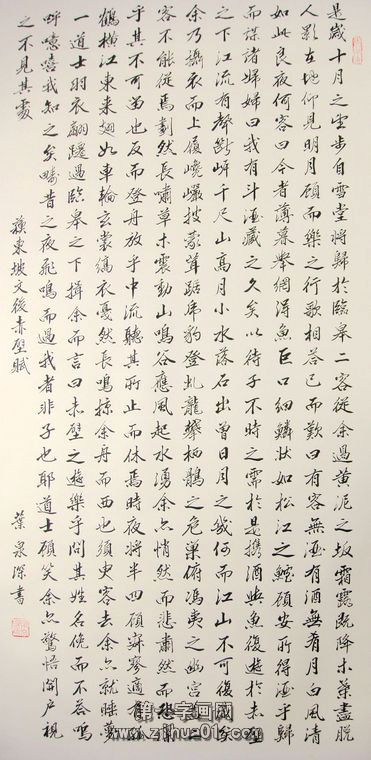 是歲十月之望步自雪堂將歸於臨皋二客從余過黃泥之坂霜露既降木葉盡脫
人影在地仰見明月顧而樂之行歌相答已而歎曰有客無酒有酒無肴月白風清
如此良夜何客曰今者薄暮舉網得魚巨口細鱗狀如松江之鱸顧安所得酒乎歸
而謀諸婦婦曰我有斗酒藏之久矣以待子不時之需於是攜酒與魚復遊於赤壁
之下江流有聲斷岸千尺山高月小水落石出曾日月之幾何而江山不可復識矣
余乃攝衣而上履巉巖披蒙茸踞虎豹登虬龍攀栖鶻之危巢俯馮夷之幽宮二
客不能從焉劃然長嘯草木震動山鳴谷應風起水湧余亦悄然而悲肅然而恐凜
乎其不可留也反而登舟放乎中流聽其所止而休焉時夜將半四顧寂寥適有孤
鶴橫江東來翅如車輪玄裳縞衣戛然長鳴掠余舟而西也須臾客去余亦就睡夢
一道士羽衣翩躚過臨皋之下揖余而言曰赤壁之遊樂乎問其姓名俛而不答嗚
呼噫嘻我知之矣疇昔之夜飛鳴而過我者非子也耶道士顧笑余亦驚悟開戶視
之不見其處
蘇東坡文後赤壁賦
葉泉深書
第一字画网
www.zihua01.com